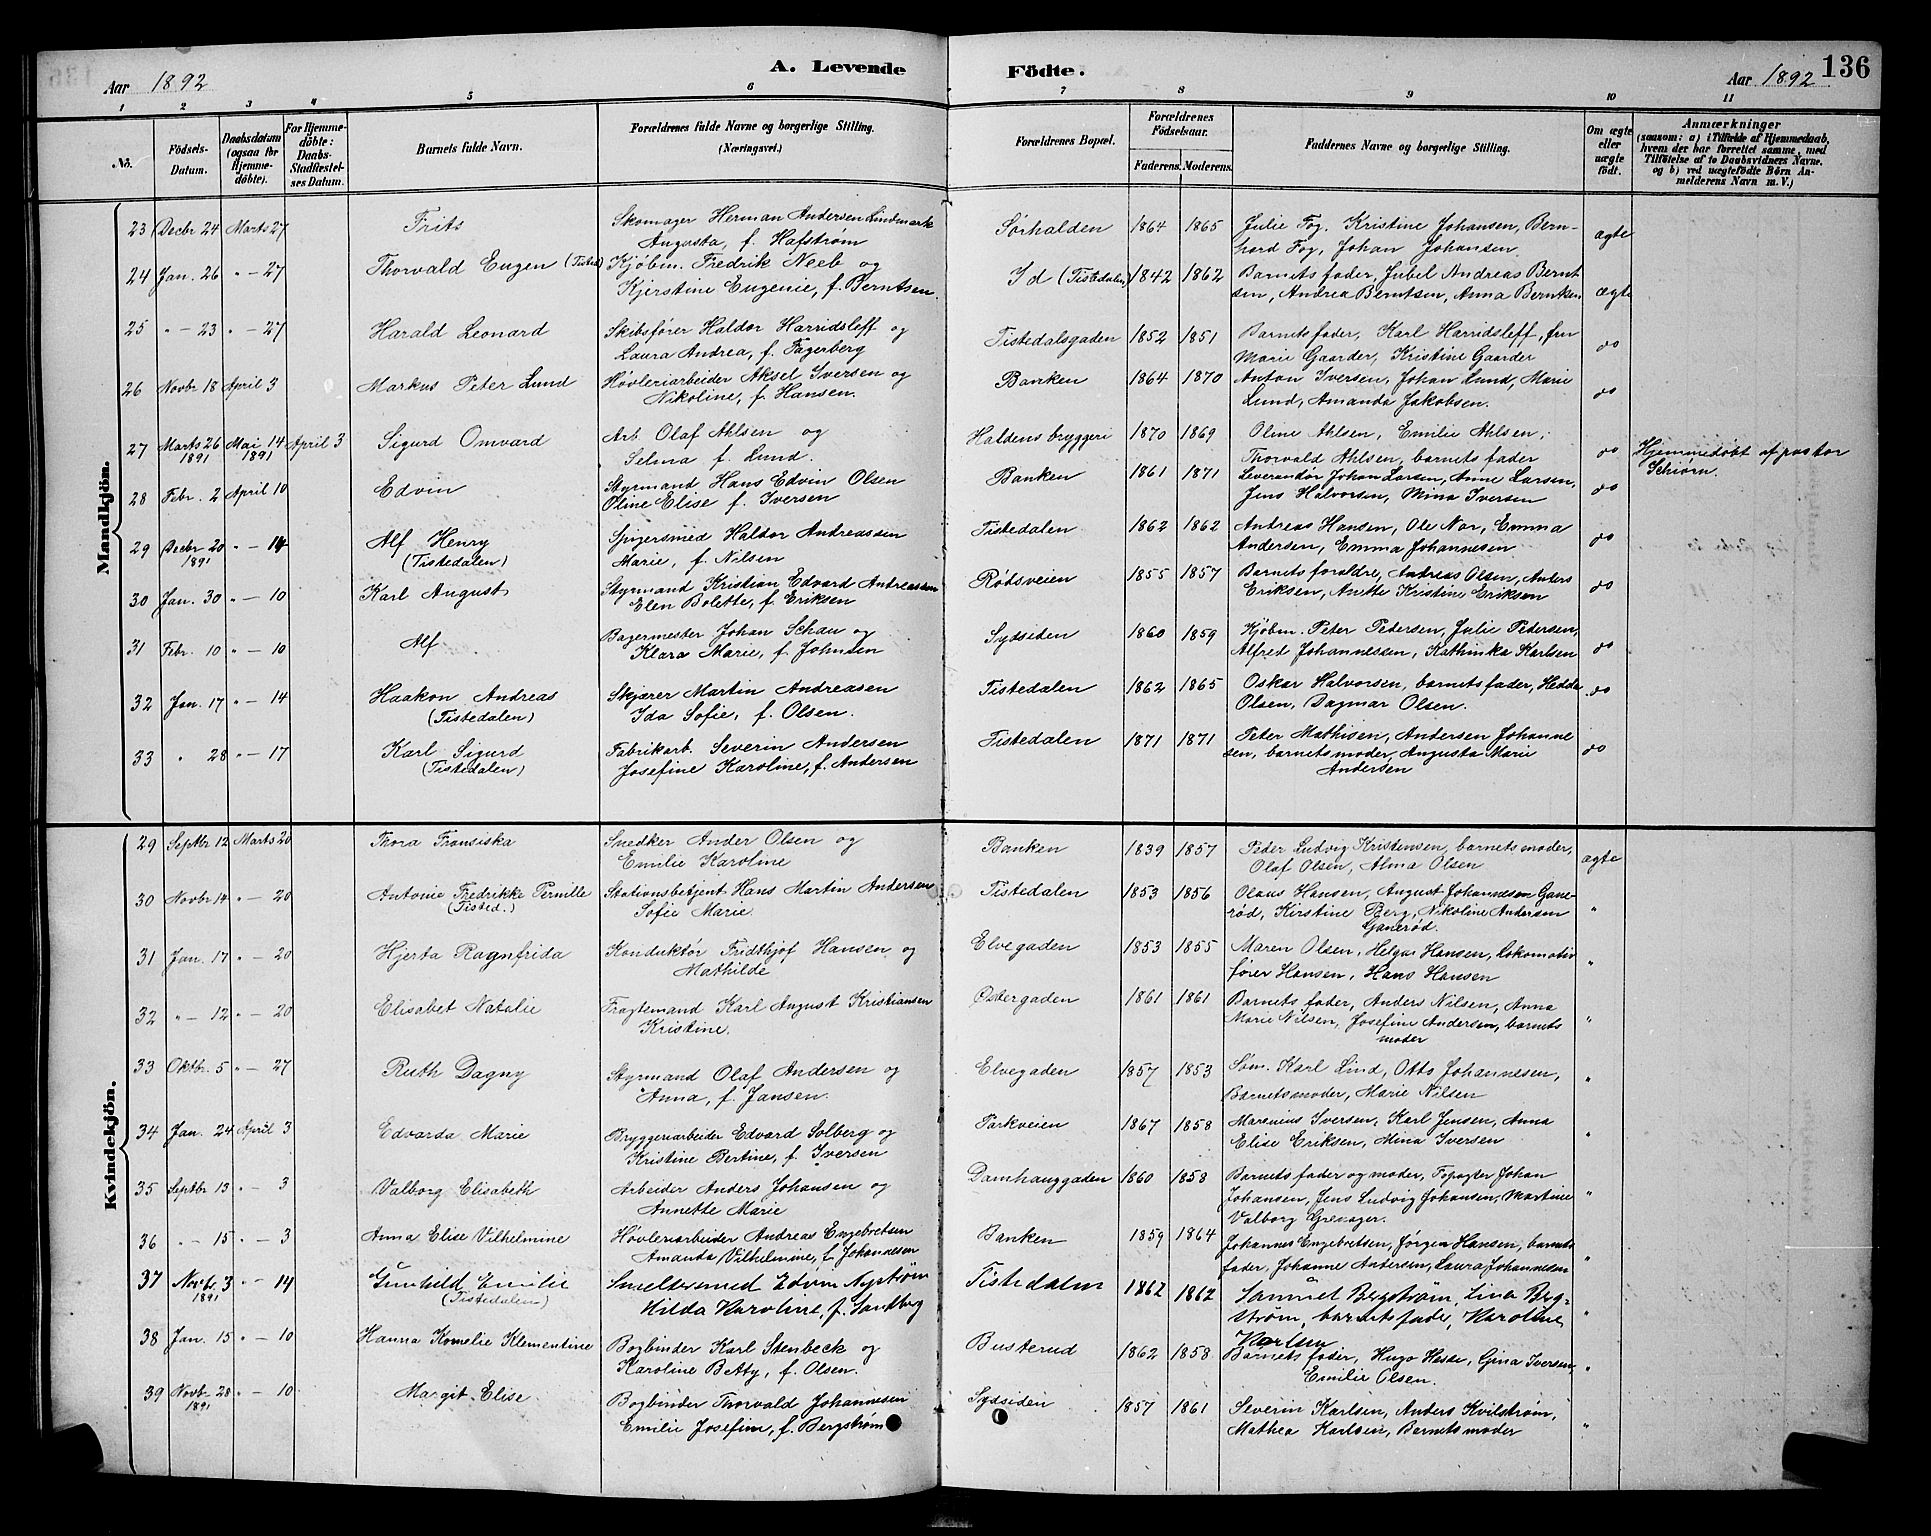 136
Aar 1892 A. Levende Födte. Aar 1892
1 2 3 4 5 6 7 8 9 10 11
No. Födsels-Datum. Daabsdatum (ogsaa for Hjemme-döbte). For Hjemme-döbte: Daabs-Stadfæstel-ses Datum. Barnets fulde Navn. Forældrenes fulde Navne og borgerlige Stilling. (Næringsvei.) Forældrenes Bopæl. Forældrenes Födselsaar. Faderens. Moderens. Faddernes Navne og borgerlige Stilling. Om ægte eller uægte födt. Anmærkninger (saasom: a) i Tilfælde af Hjemmedaab, hvem der har forrettet samme, med Tilföielse af to Daabsvidners Navne, og b) ved uægtefödte Börn An-melderens Navn m. V.)
Mandkjön.
23 Decbr 24 Marts 27 Frits Skomager Herman Andersen Lindmark Sørhalden 1864 1865 Julie Fog, Kristine Johansen, Bern-
Augusta, f. Hafstrøm hard Fog, Johan Johansen ægte
24 Jan. 26 " - 27 Thorvald Eugen (Tisted) Kjøbm. Fredrik Neeb og Id (Tistedalen) 1842 1862 Barnets fader, Jubel Andreas Bernt
Kjerstine Eugenie, f. Berntsen. sen, Andrea Berntsen, Anna Berntsen ægte
25 " - 23 " - 27 Harald Leonard Skibsfører Haldor Harridsleff og Tistedalsgaden 1852 1851 Barnets fader, Karl Harridsleff, fru
Laura Andrea, f. Fagerberg Marie Gaarder, Kristine Gaarder do
26 Novbr 18 April 3 Markus Peter Lund Høvleriarbeider Aksel Iversen og Banken 1864 1870 Anton Iversen, Johan Lund, Marie
Nikoline, f. Hansen. Lund, Amanda Jakobsen. do
27 Marts 26 1891 Mai 14 1891 April 3 Sigurd Omvard Arb. Olaf Ahlsen og Haldens bryggeri 1870 1869 Oline Ahlsen, Emilie Ahlsen,
Selma f. Lund. Thorvald Ahlsen, barnets fader do Hjemmedøbt af pastor Schiørn.
28 Febr. 2 April 10 Edvin Styrmand Hans Edvin Olsen Banken 1861 1871 Leverandør Johan Larsen, Anne Larsen,
Oline Elise f. Iversen Jens Halvorsen, Mina Iversen do
29 Decbr 20 1891 " - 14 Alf Henry Spigersmed Haldor Andreassen Tistedalen 1862 1862 Andreas Hansen, Ole Nor, Emma
(Tistedalen) Marie, f. Nilsen Andersen, Emma Johannesen do
30 Jan. 30 " - 10 Karl August Styrmand Kristian Edvard Andreassen Rødsveien 1855 1857 Barnets forældre, Andreas Olsen, Anders
Elen Bolette, f. Eriksen Eriksen, Anette Kristine Eriksen do
31 Febr. 10 " - 10 Alf Bagermester Johan Schau og Sydsiden 1860 1859 Kjøbm. Peter Pedersen, Julie Pedersen,
Klara Marie, f. Johnsen Alfred Johannessen, Kathinka Karlsen do
32 Jan. 17 " - 14 Haakon Andreas Skjærer Martin Andreasen Tistedalen 1862 1865 Oskar Halvorsen, barnets fader, Hedda
(Tistedalen) Ida Sofie, f. Olsen. Olsen, Dagmar Olsen. do
33 " 28 " - 17 Karl Sigurd Fabrikarb. Severin Andersen Tistedalen 1871 1871 Peter Mathisen, Andersen Johanne
(Tistedalen) Josefine Karoline, f. Andersen sen, barnets moder, Augusta Marie do
Andersen
Kvindekjön.
29 Septbr 12 Marts 20 Thora Fransiska Snedker Ander Olsen og Banken 1839 1857 Peder Ludvig Kristensen, barnets moder,
Emilie Karoline Olaf Olsen, Alma Olsen ægte
30 Novbr 14 " - 20 Antonie Fredrikke Pernille Stationsbetjent Hans Martin Andersen Tistedalen 1853 1856 Olaus Hansen, August Johannesen Gane-
(Tisted.) Sofie Marie. rød, Kirstine Berg, Nikoline Andersen "
Ganerød.
31 Jan. 17 " - 20 Hjerta Ragnfrida Konduktør Fridthjof Hansen og Elvegaden 1853 1855 Maren Olsen, Helga Hansen, Lokomotiv
Mathilde fører Hansen, Hans Hansen "
32 " - 12 " - 20 Elisabet Natalie Fragtemand Karl August Kristiansen Østergaden 1861 1861 Barnets fader, Anders Nilsen, Anna
Kristine. Marie Nilsen, Josefine Andersen, barnets "
moder
33 Oktbr. 5 " - 27 Ruth Dagny Styrmand Olaf Andersen og Elvegaden 1857 1853 Søm. Karl Lind, Otto Johannesen,
Anna, f. Jansen. Barnets moder, Marie Nilsen "
34 Jan. 24 April 3 Edvarda Marie Bryggeriarbeider Edvard Solberg og Parkveien 1867 1858 Marenius Iversen, Karl Jensen, Anna
Kristine Bertine, f. Iversen Elise Eriksen, Mina Iversen "
35 Septbr 13 " - 3 Valborg Elisabeth Arbeider Anders Johansen og Damhauggaden 1860 1858 Barnets fader og moder, Johan
Annette Marie Johansen, Jens Ludvig Johansen, Martine "
Valborg Grenager.
36 " - 15 " - 3 Anna Elise Vilhelmine Høvleriarbeider Andreas Engebretsen Banken 1859 1864 Johannes Engebretsen, Jørgen Hansen, barnets
Amanda Vilhelmine, f. Johannesen fader, Johanne Andersen, Laura Johannesen "
37 Novbr. 3 1891 " - 14 Gunhild Emilie Smeltesmed Edvin Nystrøm Tistedalen 1862 1862 Samuel Bergstrøm, Lina Berg-
(Tistedalen) Hilda Karoline, f. Sandberg strøm, barnets fader, Karoline "
Karlsen
38 Jan. 15 " - 10 Hanna Kornelie Klementine Bogbinder Karl Stenbeck og Busterud 1862 1858 Barnets fader, Hugo Hesse, Gina Iversen,
Karoline Betty, f. Olsen. Emilie Olsen. "
39 Novbr. 28 1891 " - 10 Margit Elise Bogbinder Thorvald Johannesen Sydsiden 1857 1861 Severin Karlsen, Anders Kvilstrøm,
Emilie Josefine, f. Bergstrøm Mathea Karlsen, Barnets moder "